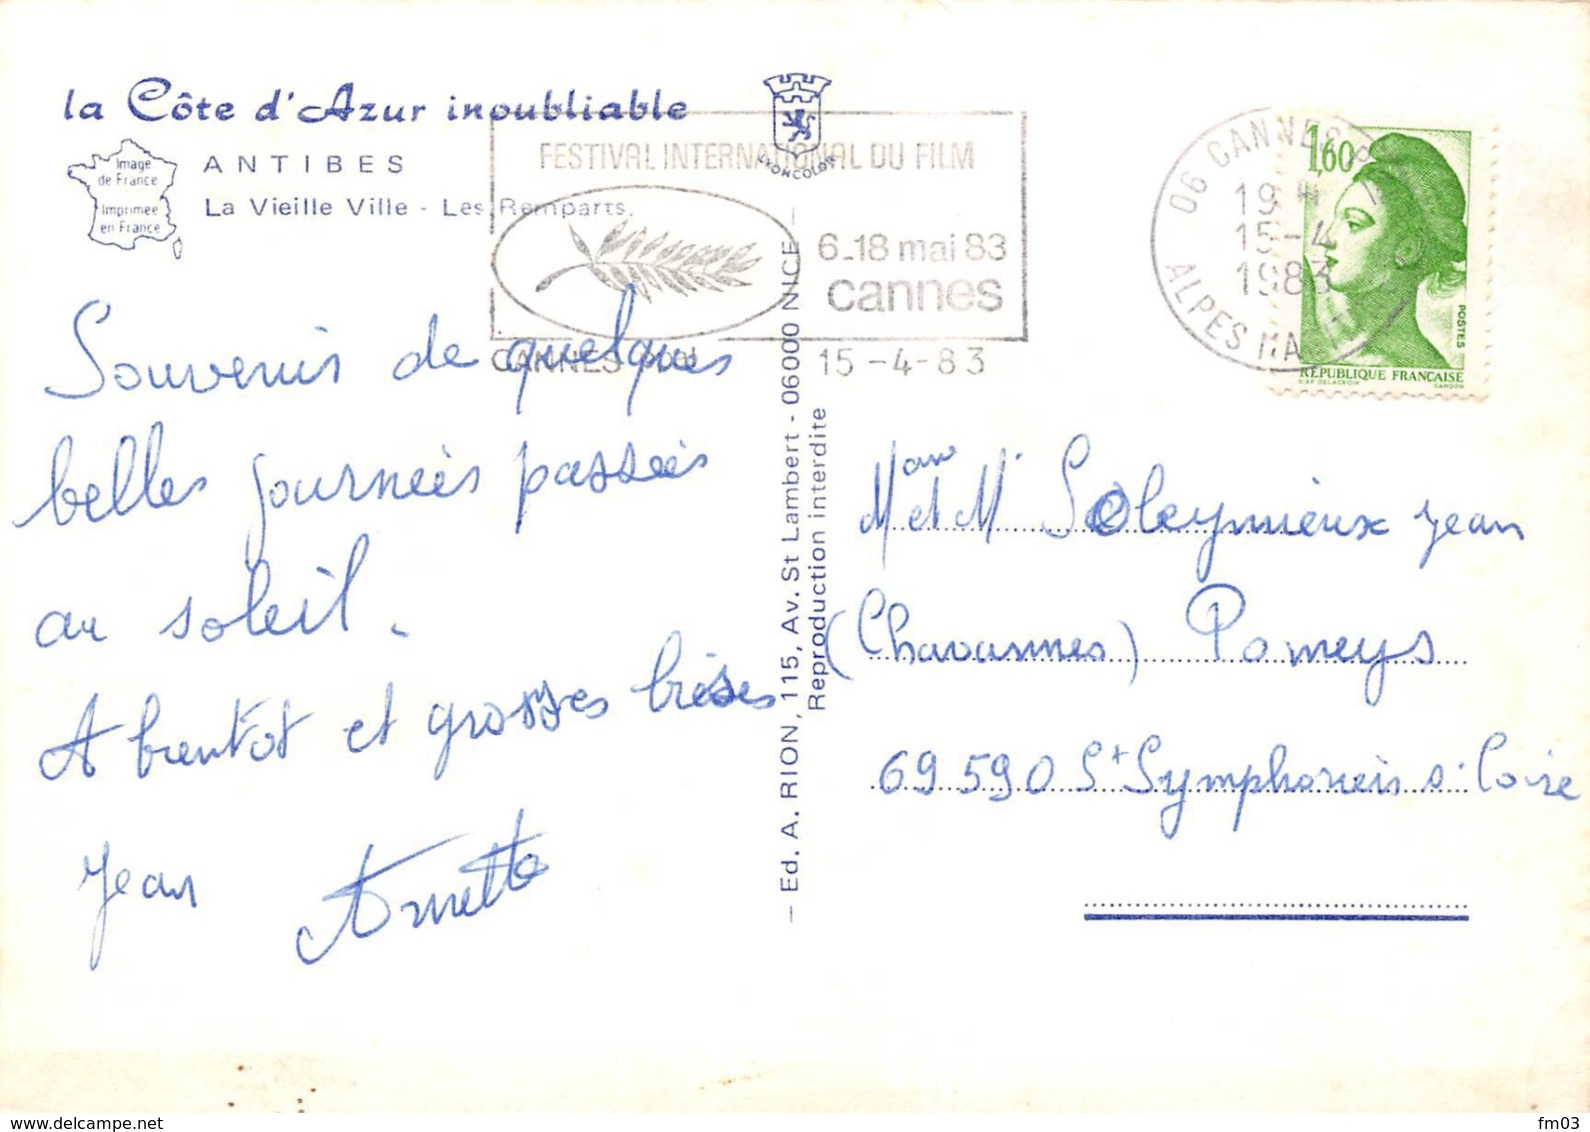 la Côte d'Azur inoubliable
Image
de France
Imprimée
en France
ANTIBES
La Vieille Ville - Les Remparts.
LYONCOLOR
FESTIVAL INTERNATIONAL DU FILM
6_18 mai 83
cannes
CANNES
15-4-83
06 CANNES
19 H
15-4
1983
ALPES MARIT
1,60
POSTES
RÉPUBLIQUE FRANÇAISE
D'AP. DELACROIX
GANDON
Souvenirs de quelques
belles journées passées
au soleil.
A bientôt et grosses bises
Jean Annette
— Ed. A. RION, 115, Av. St Lambert - 06000 NICE —
Reproduction interdite
Mme et Mr Soleymieux Jean
(Chavannes) Pomeys
69590 St Symphorien s. Coise
fm03